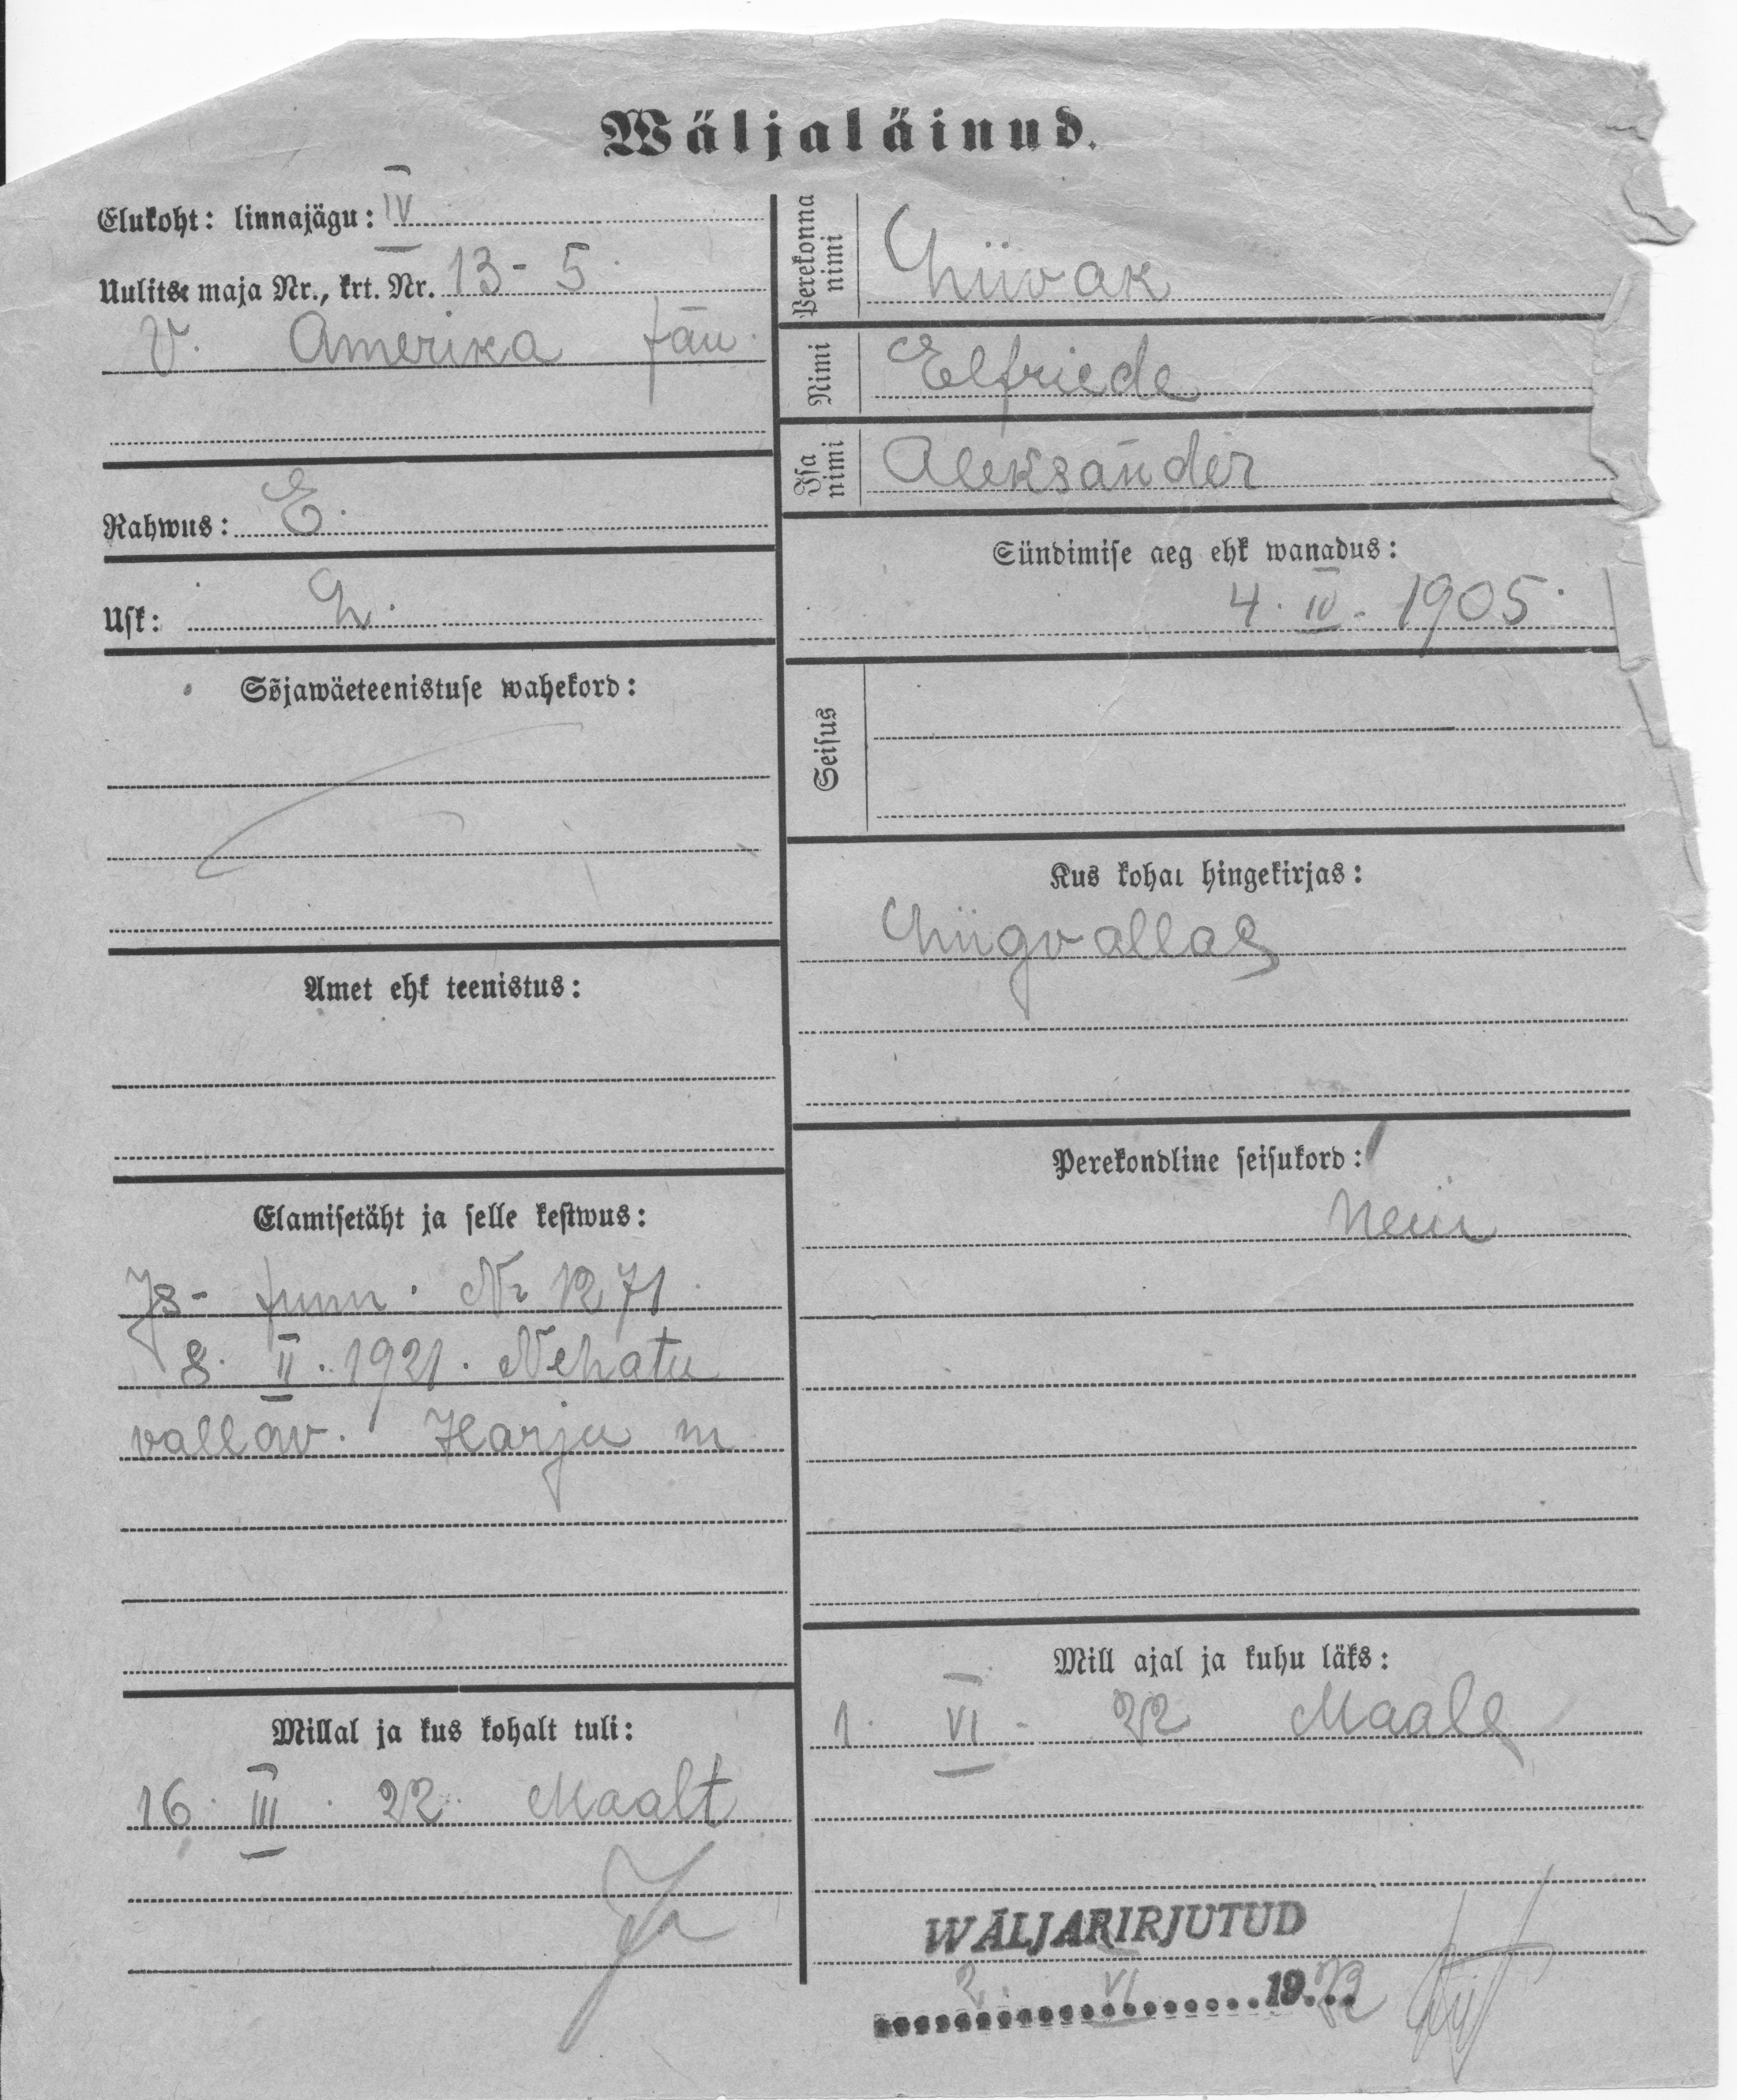 Wäljaläinud.
Elukoht: linnajägu: IV
Uulitse maja Nr., krt. Nr. 13-5.
V. Amerika tän.
Rahwus: E.
Usk: L.
Sõjawäeteenistuse wahekord:
Amet ehk teenistus:
Elamisetäht ja selle kestwus:
Is- tunn. Nr 1271.
8. II. 1921. Nehatu
vallav. Harju m
Millal ja kus kohalt tuli:
16. III. 22. Maalt
Perekonna nimi
Liivak
Nimi
Elfriede
Isa nimi
Aleksander
Sündimise aeg ehk wanadus:
4. IV. 1905.
Seisus
Kus kohal hingekirjas:
Liigvallas
Perekondline seisukord:
Neiu
Mill ajal ja kuhu läks:
1. VI. 22 Maale
WÄLJARIRJUTUD
2. VI 1922